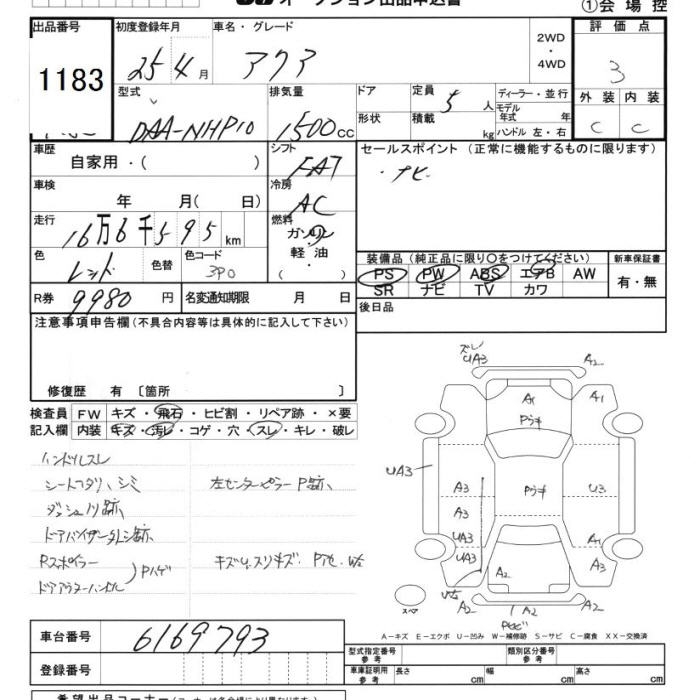 オークション出品申込書 ①会場控
出品番号 初度登録年月 車名・グレード 2WD・4WD 評価点
1183 25年4月 アクア 3
型式 排気量 ドア 定員 5人 ディーラー・並行 外装 内装
DAA-NHP10 1500cc 形状 積載 kg モデル年式 年 C C
ハンドル 左・右
車歴 自家用・( ) シフト FAT セールスポイント (正常に機能するものに限ります)
車検 年 月(日) 冷房 AC ・ナビ
走行 16万6千595km 燃料 ガソリン・軽油・( )
色 レッド 色替 色コード 3P0 装備品(純正品に限り○をつけてください) 新車保証書
PS PW ABS エアB AW 有・無
SR ナビ TV カワ
R券 9980円 名変通知期限 月 日 後日品
注意事項申告欄(不具合内容等は具体的に記入して下さい)
修復歴 有〔箇所 〕
検査員 FW キズ・飛石・ヒビ割・リペア跡・×要
記入欄 内装 キズ・汚レ・コゲ・穴・スレ・キレ・破レ
ハンドルスレ
シートヘタリ、シミ 左センターピラーP跡、
ダッシュノリ跡
ドアバイザー外し跡
Rスポイラー キズU、スリキズ、
ドアアウターハンドル Pハゲ
ズレ
UA3 A2
A1 A1
Pウキ
UA3
A3 Pウキ U3
A3
UA3 A1
UA3 A3
A2
A2 A2
スペア
A-キズ E-エクボ U-凹み W-補修跡 S-サビ C-腐食 XX-交換済
車台番号 6169793
型式指定番号 参考 類別区分番号 参考
登録番号 車庫証明用 参考 長さ cm 幅 cm 高さ cm
希望出品コーナー